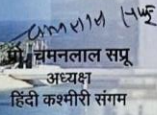 चमनलाल सप्रू
प्रो. चमनलाल सप्रू
अध्यक्ष
हिंदी कश्मीरी संगम